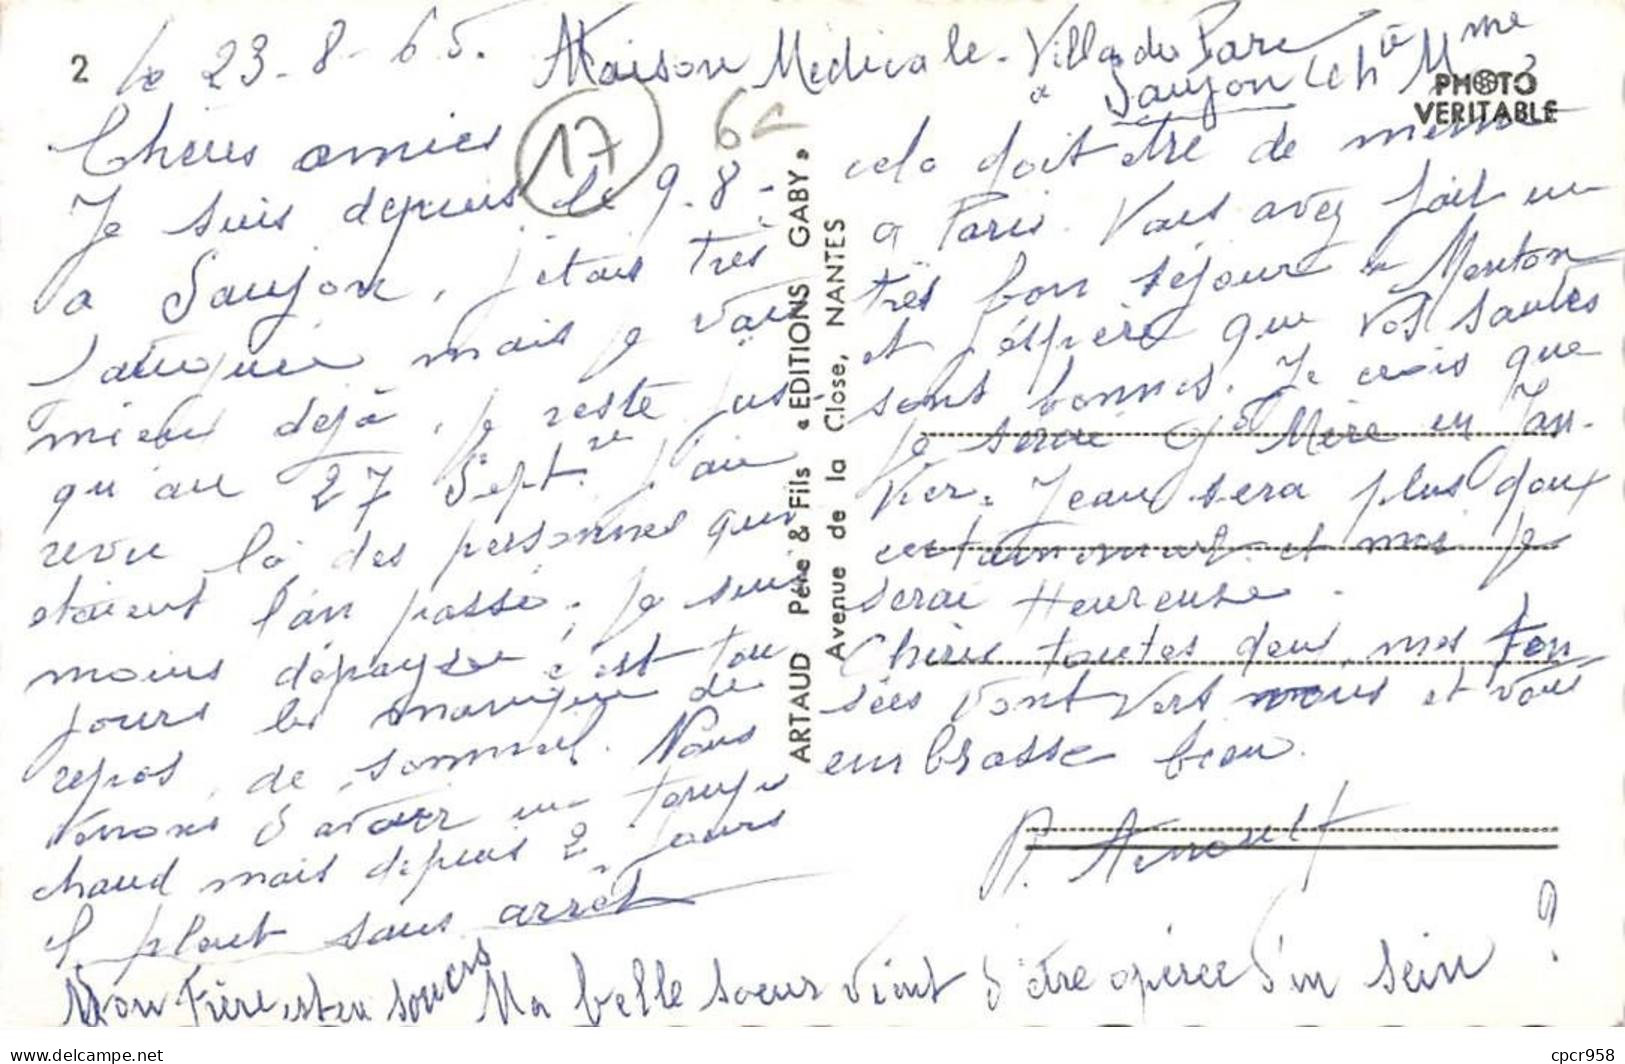 2
le 23-8-65. Maison Médicale - Villa du Parc
à Saujon (chte Mme)
PHOTO
VERITABLE
17
6€
Chères amies
Je suis depuis le 9-8-
a Saujon, j'étais très
fatiguée mais je vais
mieux déjà, je reste jus-
qu'au 27 Septre j'ai
revu là des personnes qui
étaient l'an passé, je suis
moins dépaysée c'est tou
jours le manque de
repos, de sommeil. Nous
venons d'avoir un temps
chaud mais depuis 2 jours
il pleut sans arrêt
ARTAUD Père & Fils « EDITIONS GABY »
Avenue de la Close, NANTES
cela doit être de meme
a Paris. Vous avez fait un
très bon séjour a Menton
et j'éspère que vos santés
sont bonnes. Je crois que
je serai Gd Mère en Jan-
vier. Jean sera plus doux
certainement et moi je
serai Heureuse.
Chères toutes deux, mes pen
sées vont vers vous et vous
embrasse bien.
Mon Frère est en soucis Ma belle soeur vient d'être opérée d'un sein ?
cpcr958